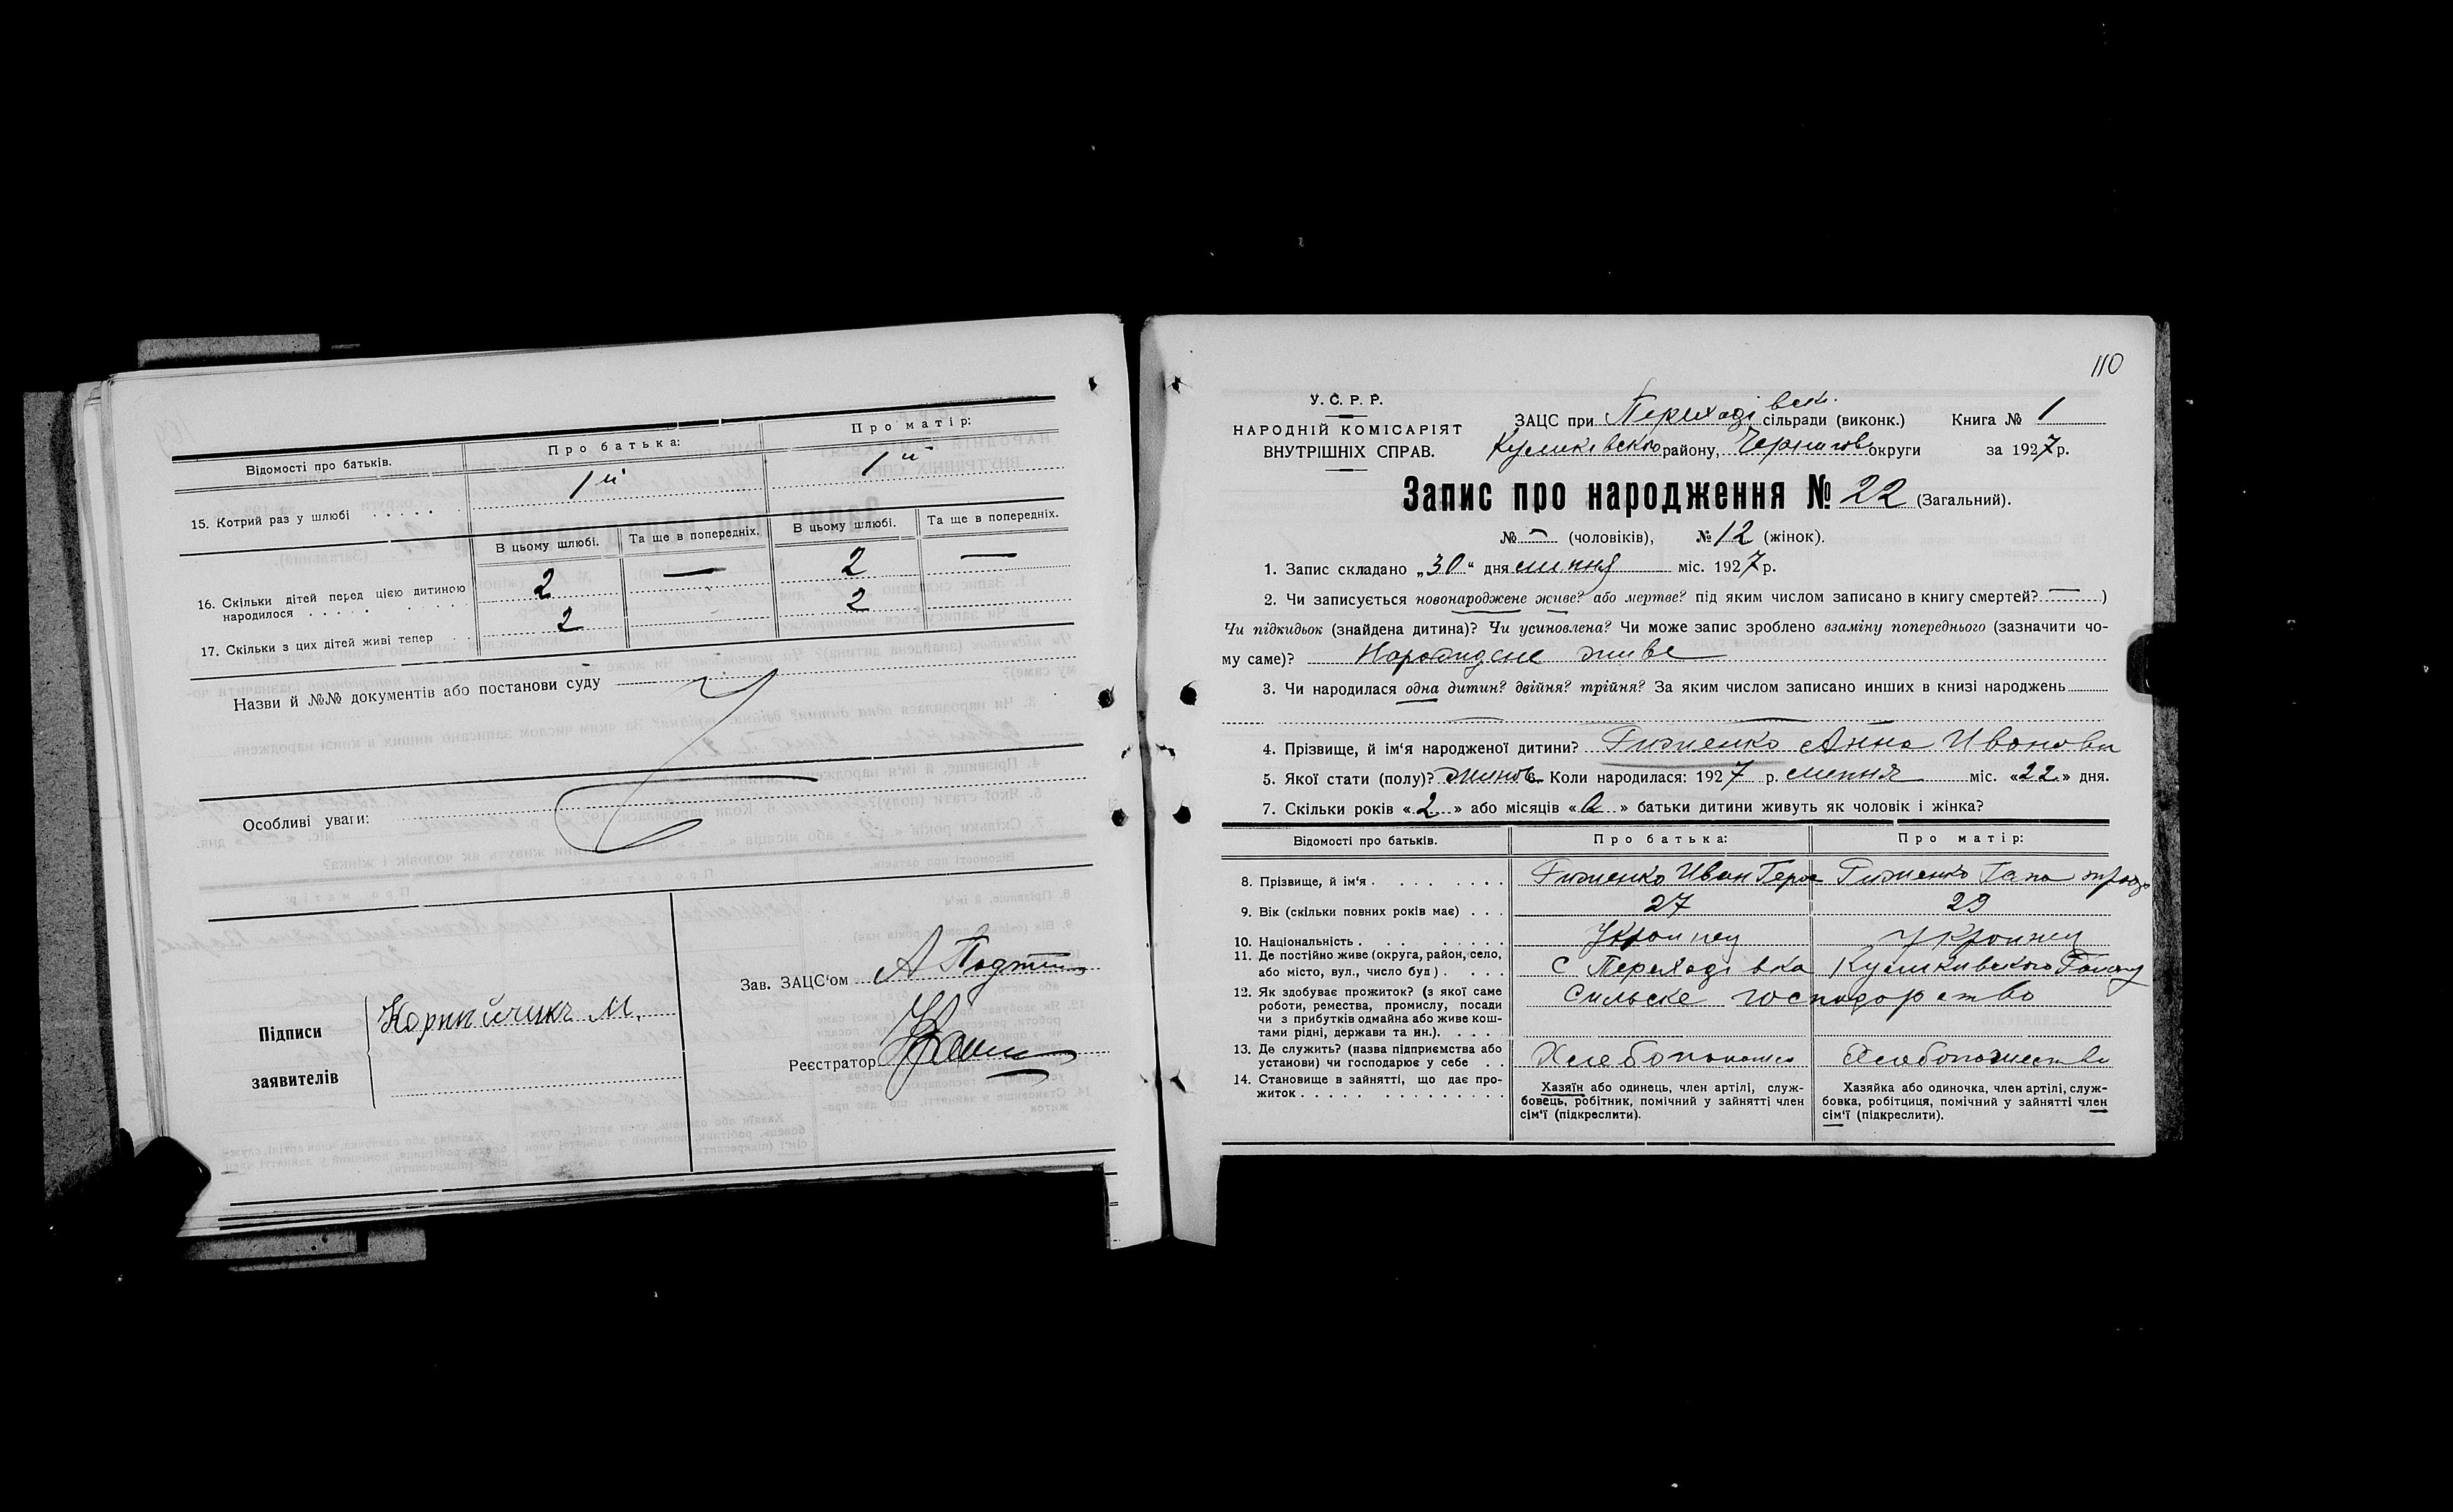 Відомості про батьків.
Про батька:
Про матір:
15. Котрий раз у шлюбі . . . . .
1й
1й
В цьому шлюбі.
Та ще в попередніх.
В цьому шлюбі.
Та ще в попередніх.
16. Скільки дітей перед цією дитиною
народилося . . . . . . . .
2
—
2
—
17. Скільки з цих дітей живі тепер . .
2
2
Назви й №№ документів або постанови суду
Особливі уваги:
Підписи
заявителів
М.
Зав. ЗАЦС'ом А
Реєстратор
110
У. С. Р. Р.
НАРОДНІЙ КОМІСАРІЯТ
ВНУТРІШНІХ СПРАВ.
ЗАЦС при Переходівськ. сільради (виконк.)
Книга № 1
Куликівского району, Чернигов округи
за 1927 р.
Запис про народження № 22 (Загальний).
№ — (чоловіків), № 12 (жінок).
1. Запис складано „30" дня липня міс. 1927 р.
2. Чи записується новонароджене живе? або мертве? під яким числом записано в книгу смертей? — )
Чи підкидьок (знайдена дитина)? Чи усиновлена? Чи може запис зроблено взаміну попереднього (зазначити чо-
му саме)? живе
3. Чи народилася одна дитин? двійня? трійня? За яким числом записано инших в книзі народжень
4. Прізвище, й ім'я народженої дитини? Гиженко Анна Ивановн
5. Якої стати (полу)? жиноч 6. Коли народилася: 1927 р. липня міс. «22» дня.
7. Скільки років «2» або місяців « » батьки дитини живуть як чоловік і жінка?
Відомості про батьків.
Про батька:
Про матір:
8. Прізвище, й ім'я . . . . . . .
Гиженко Иван
Гиженко Гапа
9. Вік (скільки повних років має) . . .
27
29
10. Національність . . . . . . . .
Украинец
Украинец
11. Де постійно живе (округа, район, село,
або місто, вул., число буд) . . . .
с Переходівка Куликивського Району
12. Як здобуває прожиток? (з якої саме
роботи, ремества, промислу, посади
чи з прибутків одмайна або живе кош-
тами рідні, держави та ин.). . . . .
Сильске господарство
13. Де служить? (назва підприємства або
установи) чи господарює у себе . .
14. Становище в зайнятті, що дає про-
житок . . . . . . . . . . . . . .
Хазяїн або одинець, член артілі, служ-
бовець, робітник, помічний у зайнятті член
сім'ї (підкреслити).
Хазяйка або одиночка, член артілі, служ-
бовка, робітниця, помічний у зайнятті член
сім'ї (підкреслити).